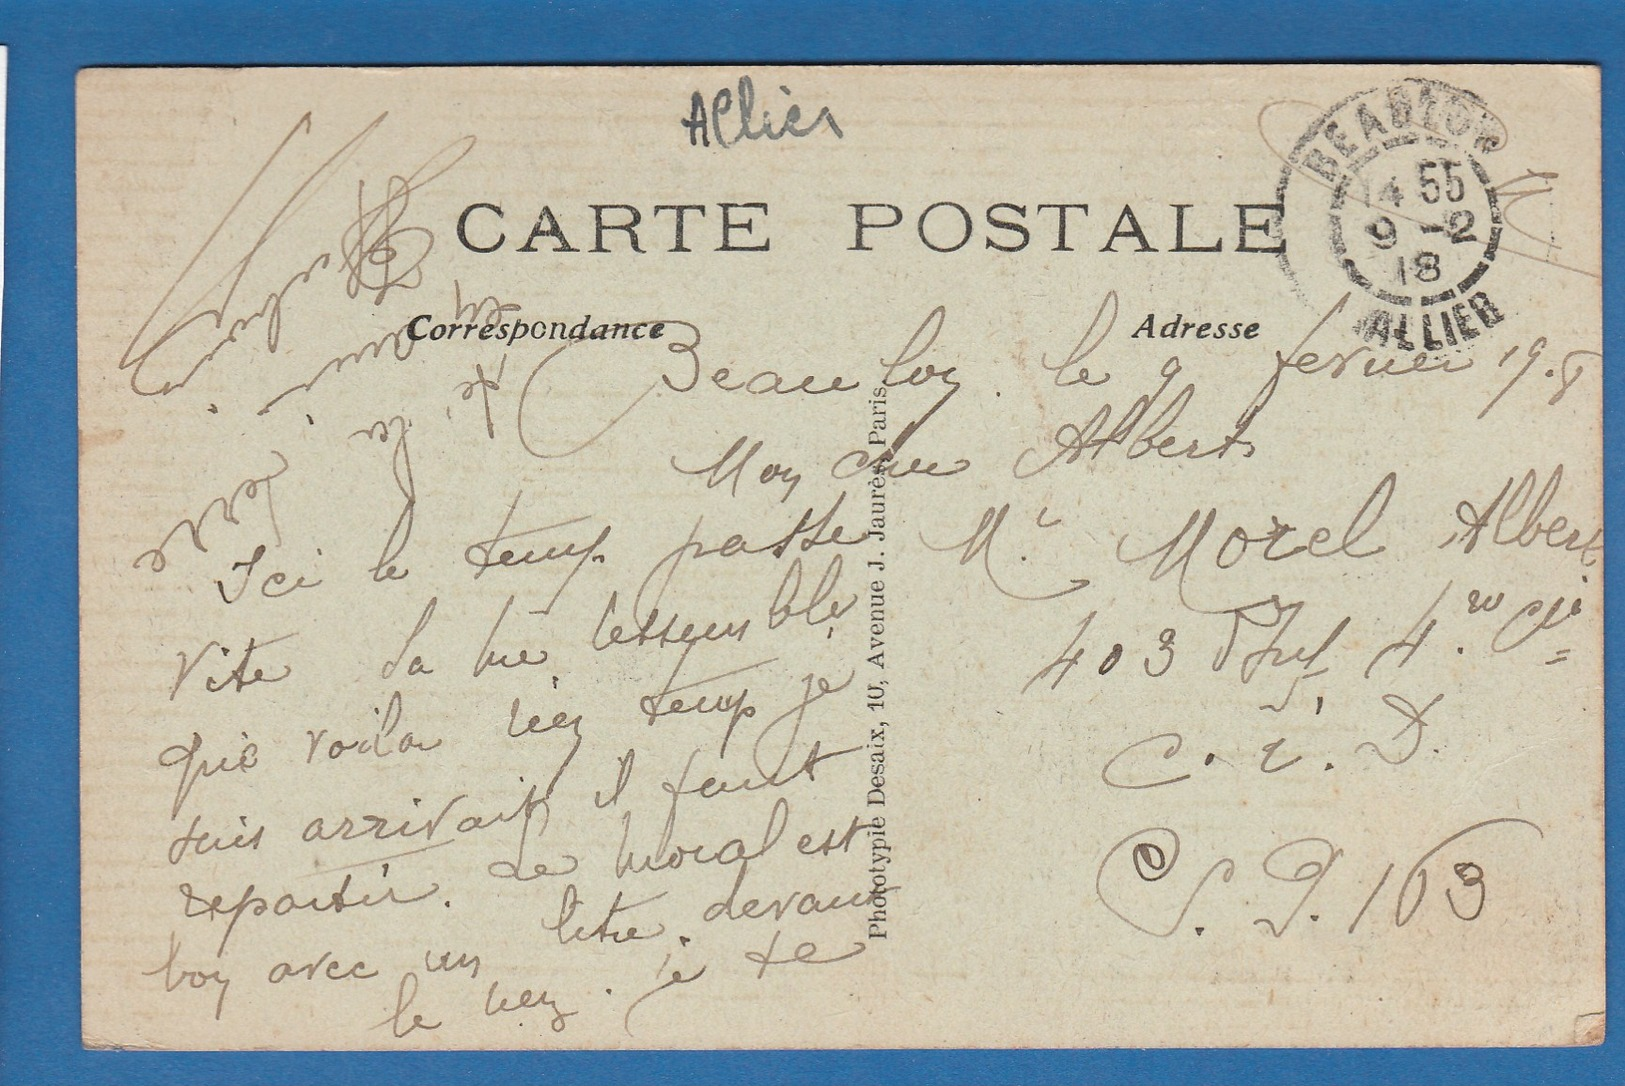 Allier
CARTE POSTALE
BEAULON
14 55
9 -2
18
ALLIER
Correspondance
Adresse
Beaulon le 9 fevrier 19.8
Mon cher Albert
Ici le temps passe
vite sa me ressemble
que voila rien temp je
suis arrivait il faut
repartir. Le moral est
bon avec un litre devant
le nez. je te
serre la
Mr Morel Albert
403 Inf 4. Cie
C. I. D.
S. P. 163
Phototypie Desaix, 10, Avenue J. Jaurès, Paris